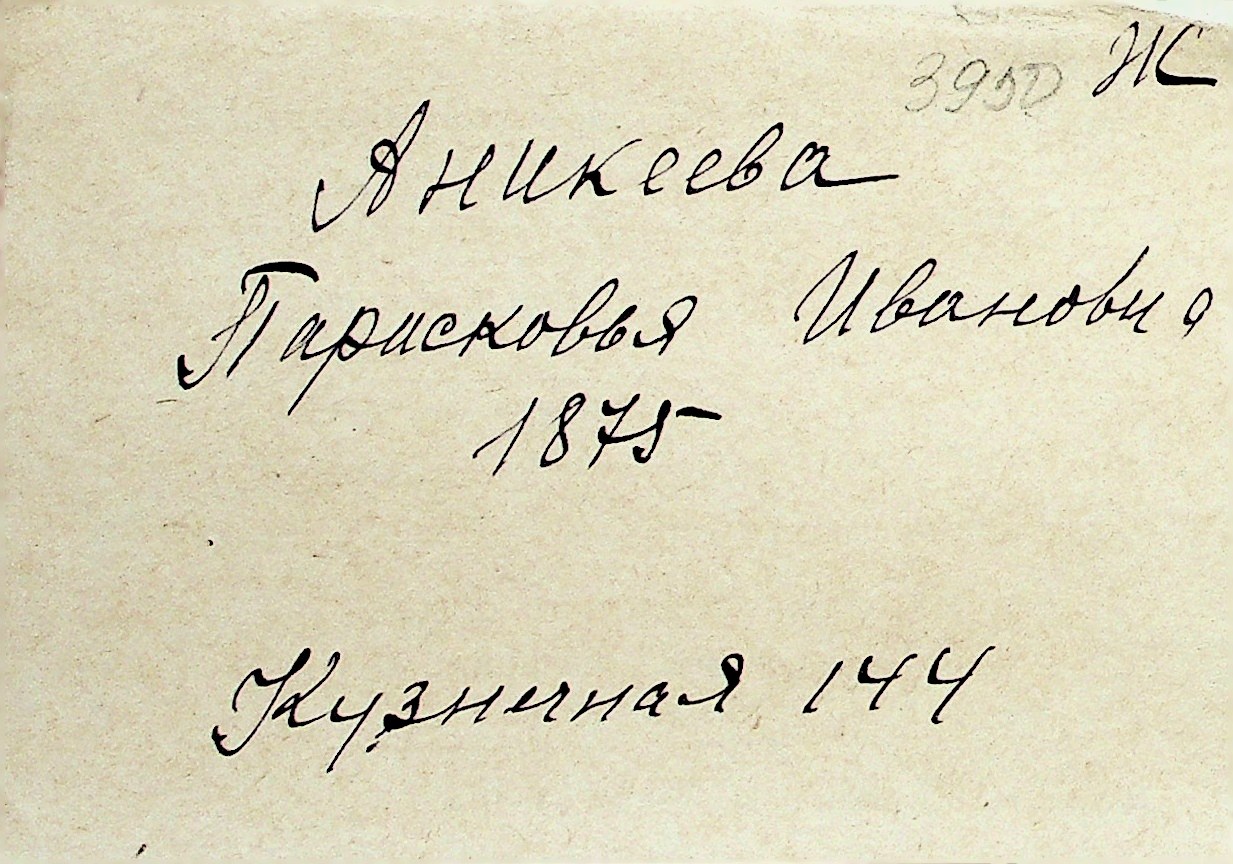 3950 Ж
Аникеева
Парисковья Ивановна
1875
Кузнечная 144